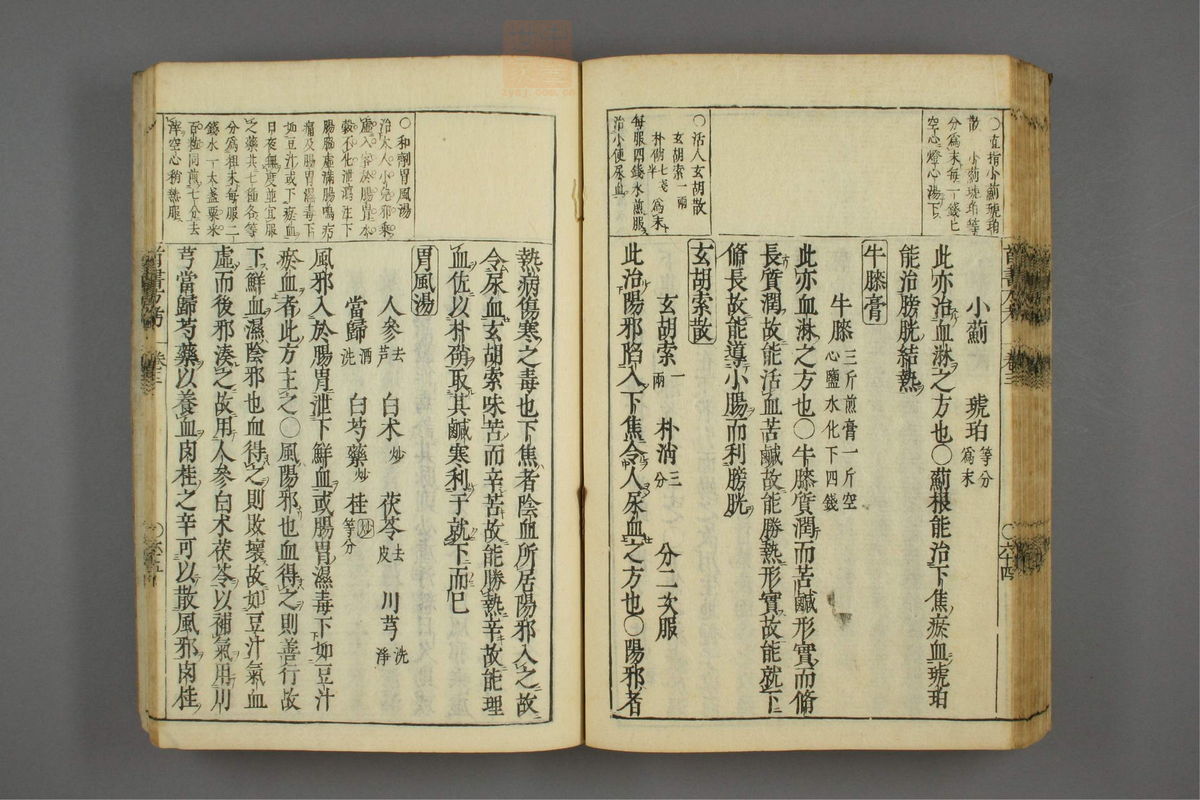 ○直指小薊琥珀
散 小薊琥珀等
分爲末每一錢七
空心燈心湯下
小薊 琥珀等分爲末
此亦治血淋之方也○薊根能治下焦瘀血琥珀
能治膀胱結熱
牛膝膏
牛膝三斤煎膏一斤空心鹽水化下四錢
此亦血淋之方也○牛膝質潤而苦鹹形實而脩
長質潤故能活血苦鹹故能勝熱形實故能就下
脩長故能導小腸而利膀胱
○活人玄胡散
玄胡索一兩
朴硝七戔半爲末
每服四錢水煎服
治小便尿血
玄胡索散
玄胡索一兩 朴硝三分 分二次服
此治陽邪陷入下焦令人尿血之方也○陽邪者
六十四
○和劑胃風湯
治大人小兒風冷乘
虛入客於腸胃水
穀不化泄瀉注下
腸脇虛滿腸鳴㽲
痛及腸胃濕毒下
如豆汁或下瘀血
日夜無度並宜服
之藥共七種各等
分爲粗末每服二
錢水一大盞粟米
百餘粒同煎七分去
滓空心稍熱服
熱病傷寒之毒也下焦者陰血所居陽邪入之故
令尿血玄胡索味苦而辛苦故能勝熱辛故能理
血佐以朴硝取其鹹寒利于就下而已
胃風湯
人參去芦 白朮炒 茯苓去皮 川芎洗淨
當歸酒洗 白芍藥炒 桂炒等分
風邪入於腸胃泄下鮮血或腸胃濕毒下如豆汁
瘀血者此方主之○風陽邪也血得之則善行故
下鮮血濕陰邪也血得之則敗壞故如豆汁氣血
虛而後邪湊之故用人參白朮茯苓以補氣用川
芎當歸芍藥以養血肉桂之辛可以散風邪肉桂
醫方考 卷三